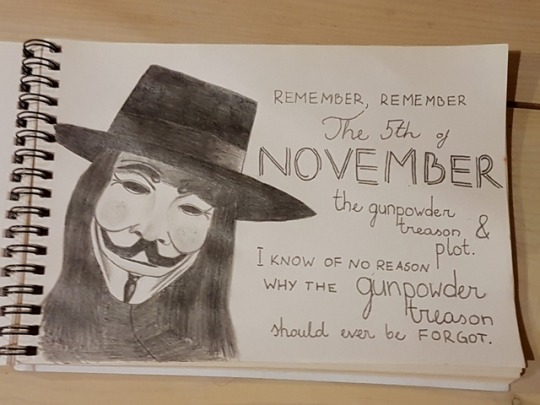 REMEMBER, REMEMBER
The 5th of
NOVEMBER
the gunpowder
treason &
plot.
I KNOW OF NO REASON
WHY THE gunpowder
treason
should ever be FORGOT.